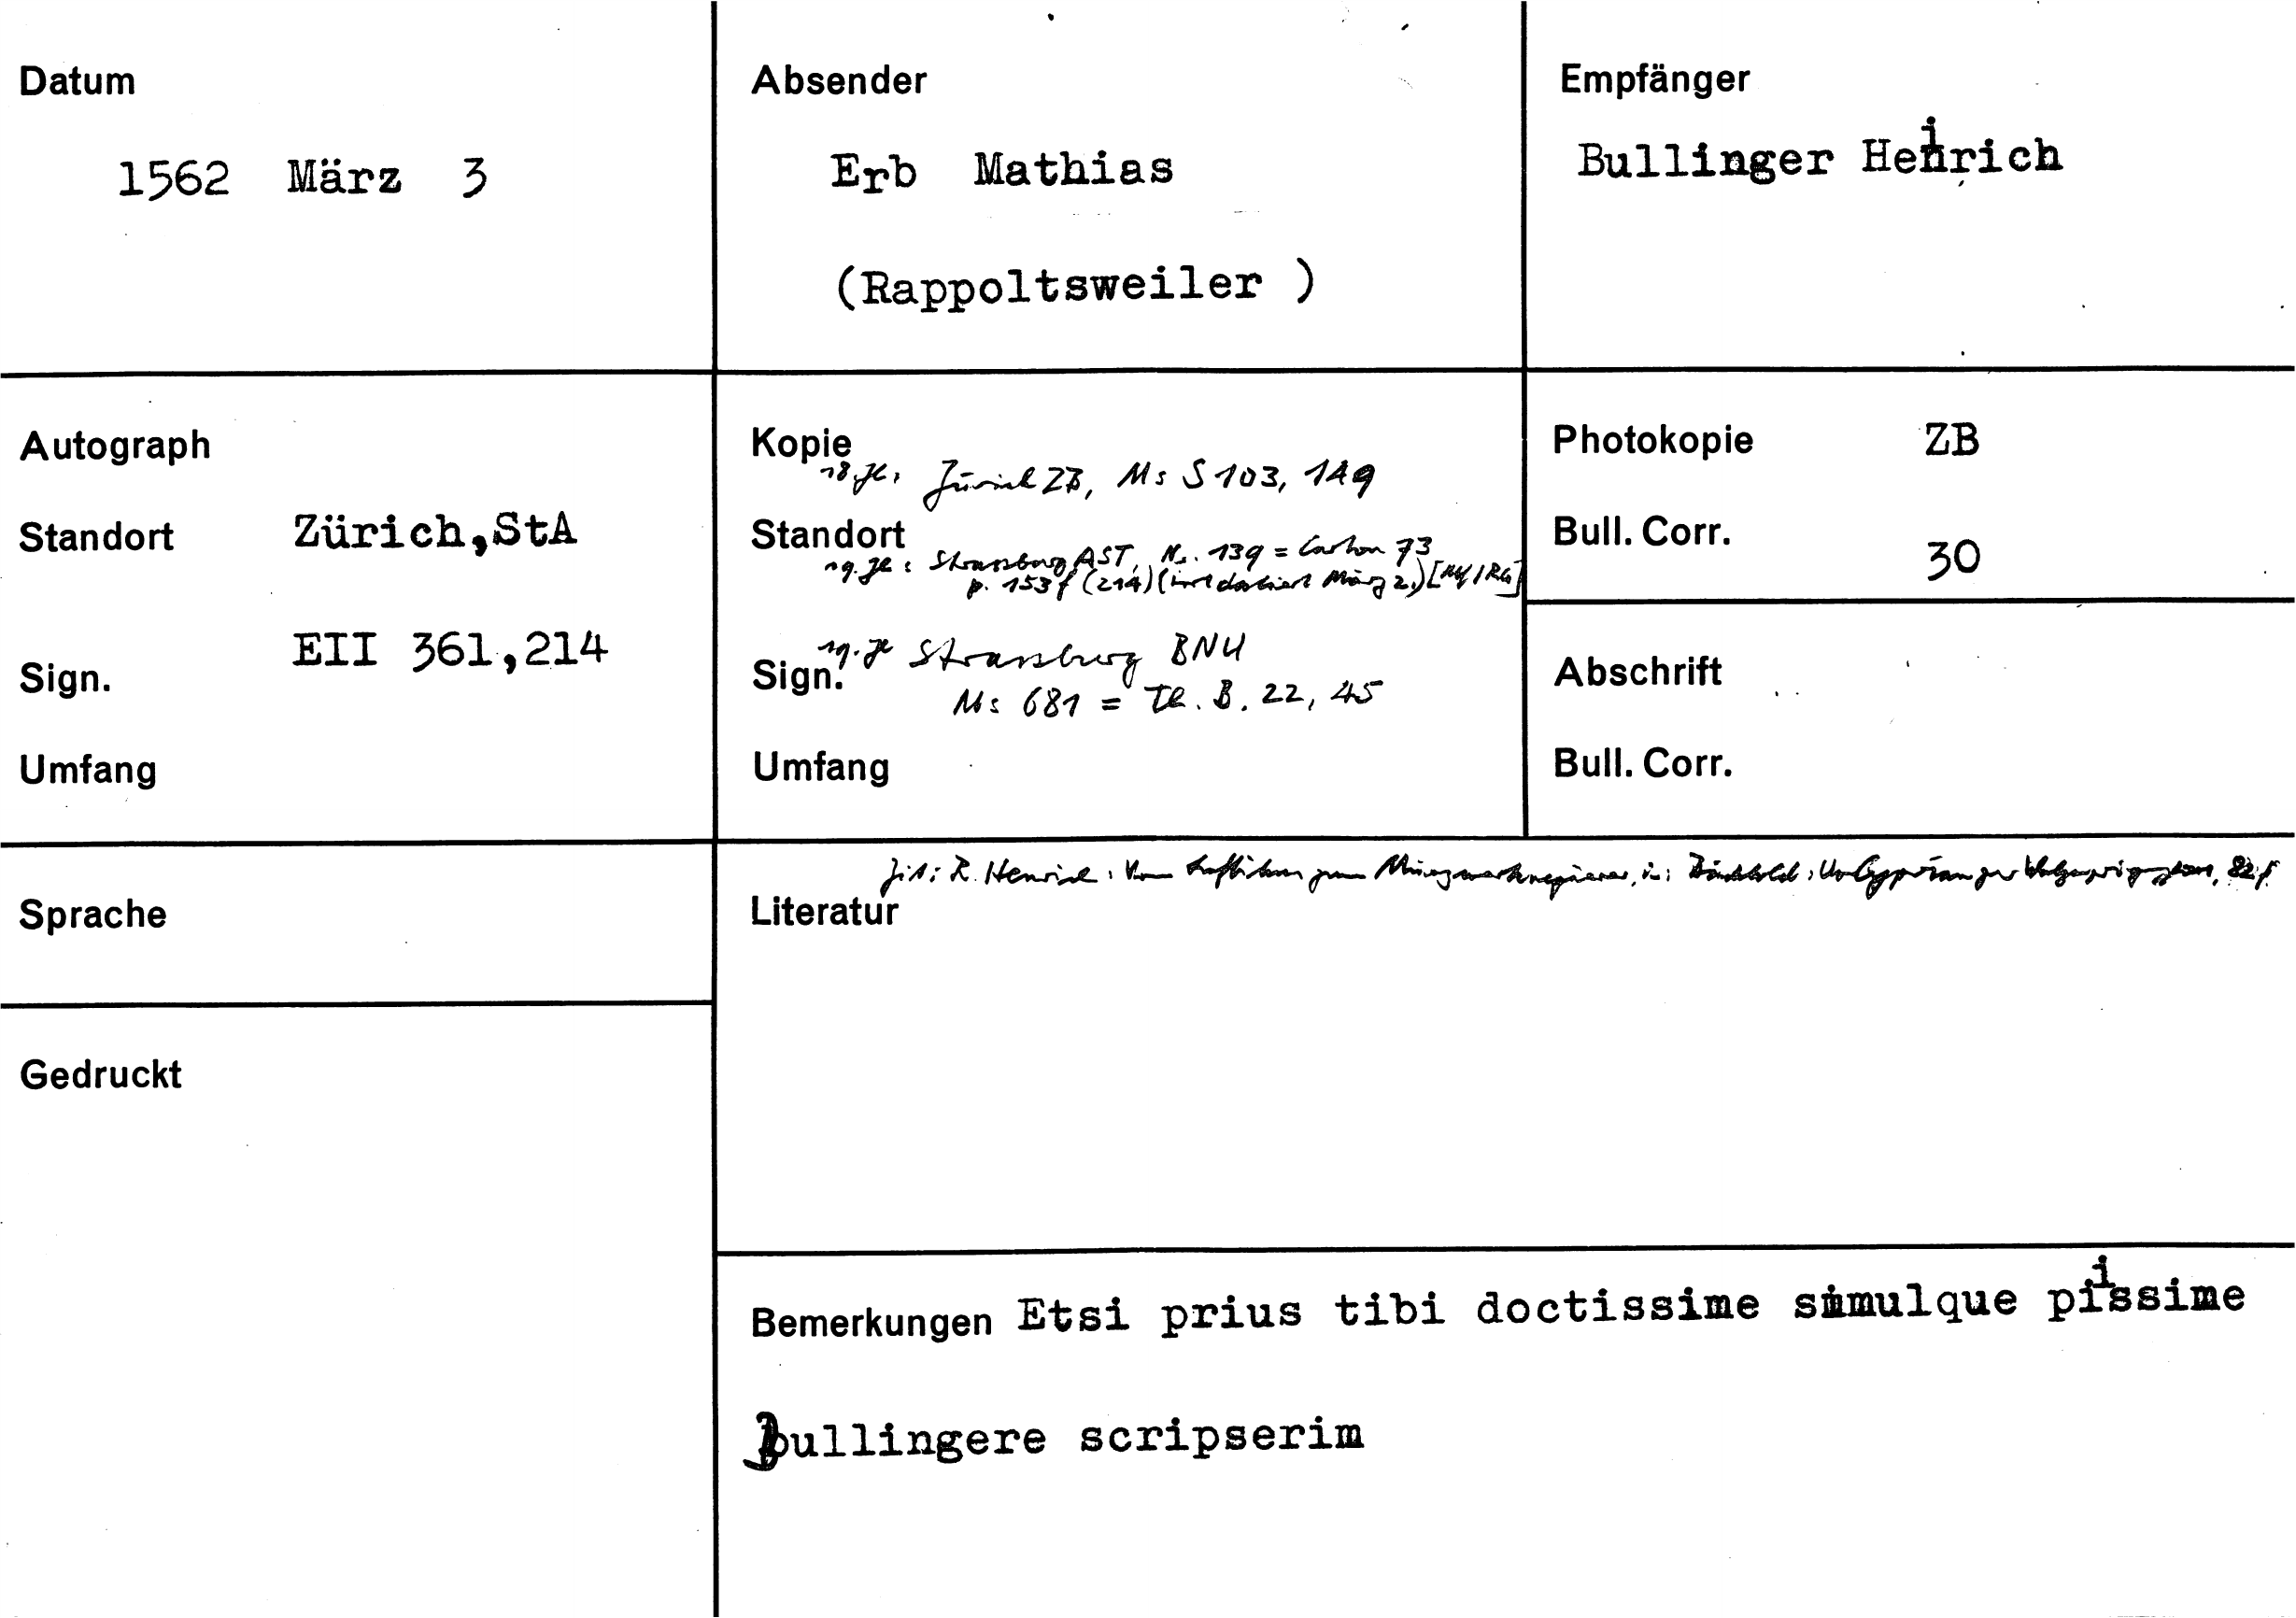 Datum
1562 März 3
Absender
Erb Mathias
(Rappoltsweiler )
Empfänger
Bullinger Heinrich
Autograph
Standort Zürich,StA
Sign. EII 361,214
Umfang
Kopie
18. Jh. Zürich ZB, Ms S 103, 149
Standort
19. Jh: Strassburg AST, Nr. 139 = Carton 73
p. 153f (214) (irrt datiert März 2.)
Sign. 19. Jh Strassburg BNU
Ms 681 = Th. B. 22, 45
Umfang
Photokopie ZB
Bull. Corr. 30
Abschrift
Bull. Corr.
Sprache
Gedruckt
Zit: R. Henrich: Vom
Literatur
Bemerkungen Etsi prius tibi doctissime simulque piissime
Bullingere scripserim